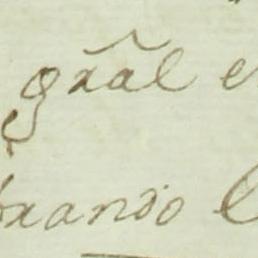 gral e
rando